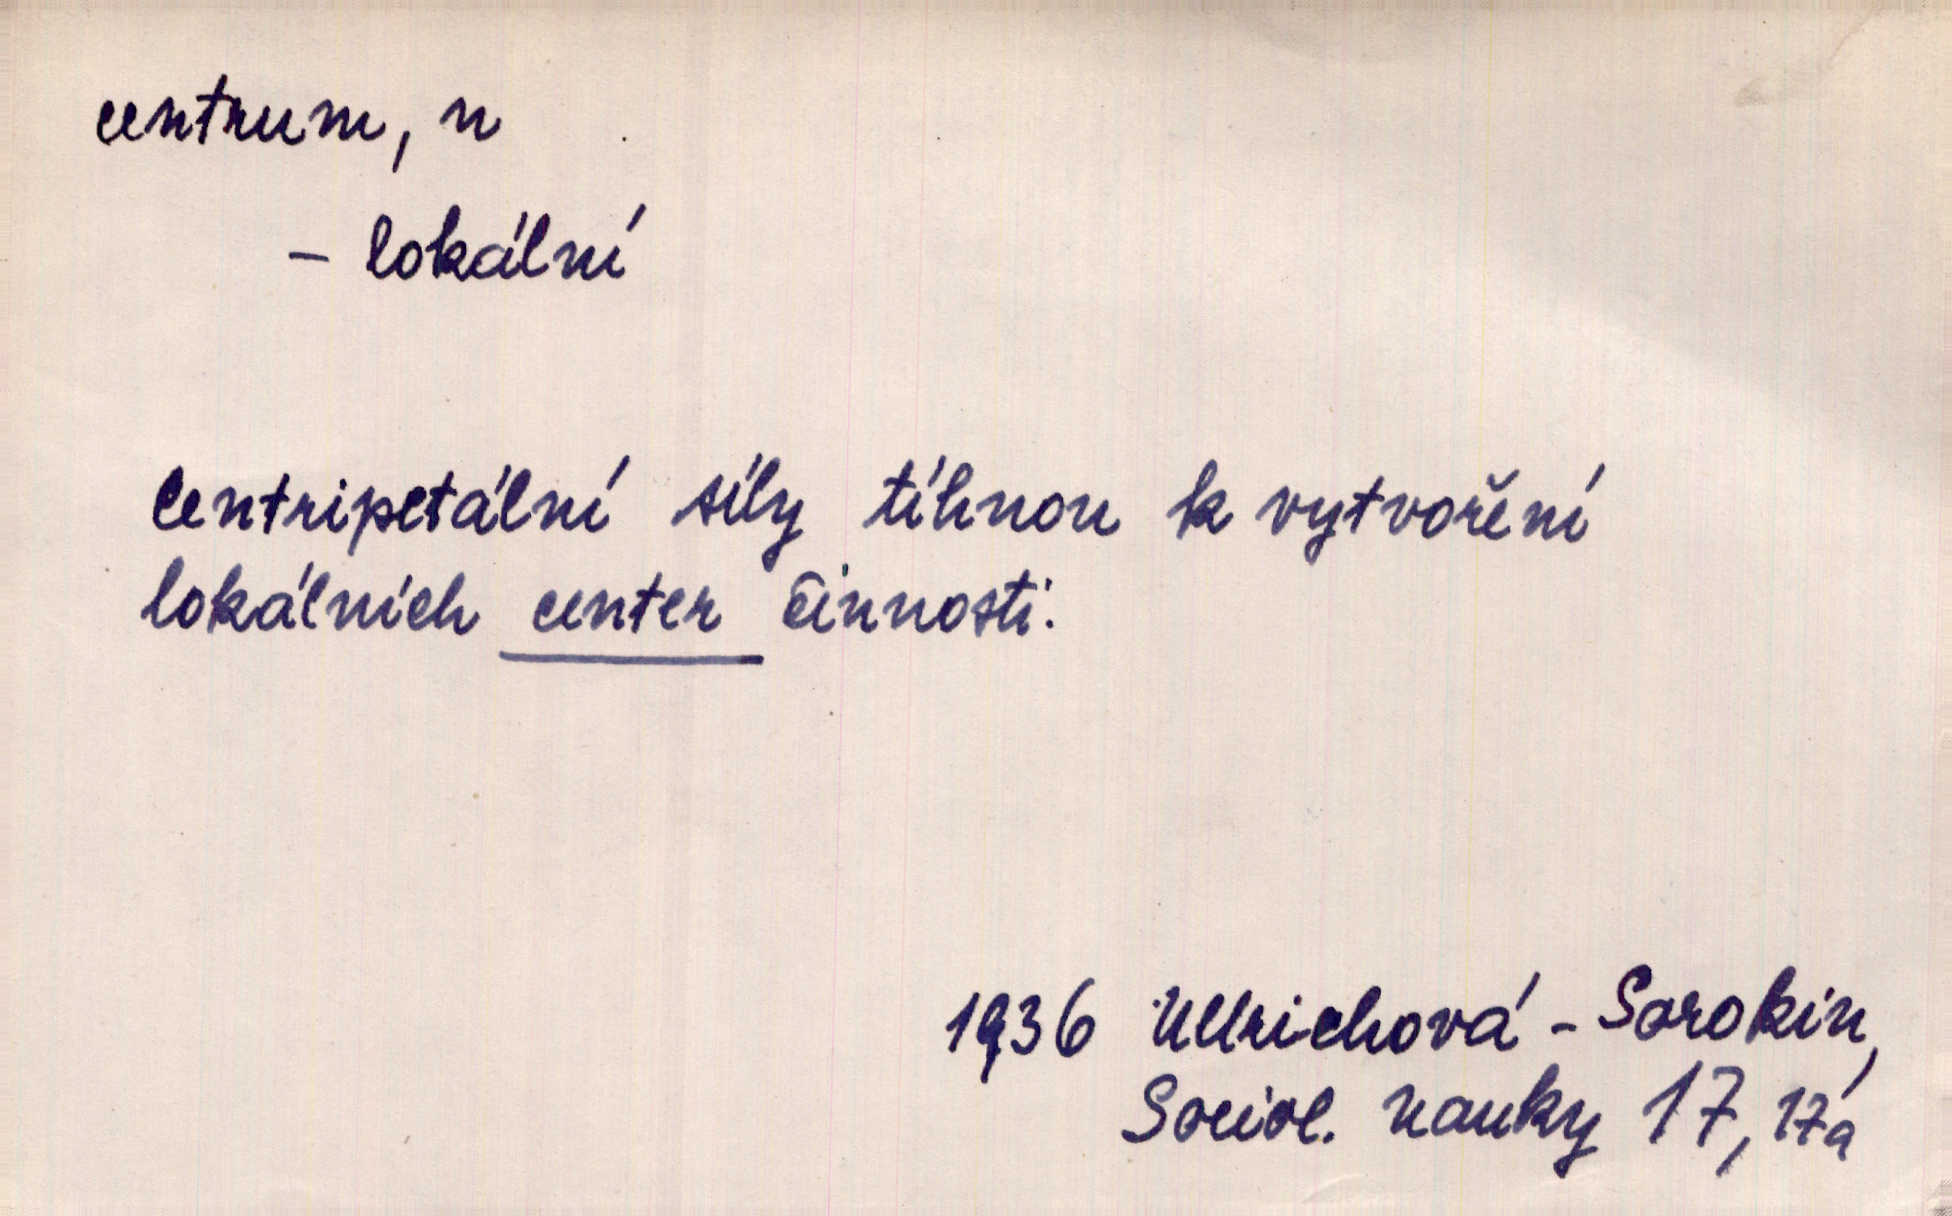 centrum, n
– lokální
Centripetální síly tíhnou k vytvoření
lokálních center činnosti.
1936 Ullrichová - Sorokin,
Sociol. nauky 17, 17a